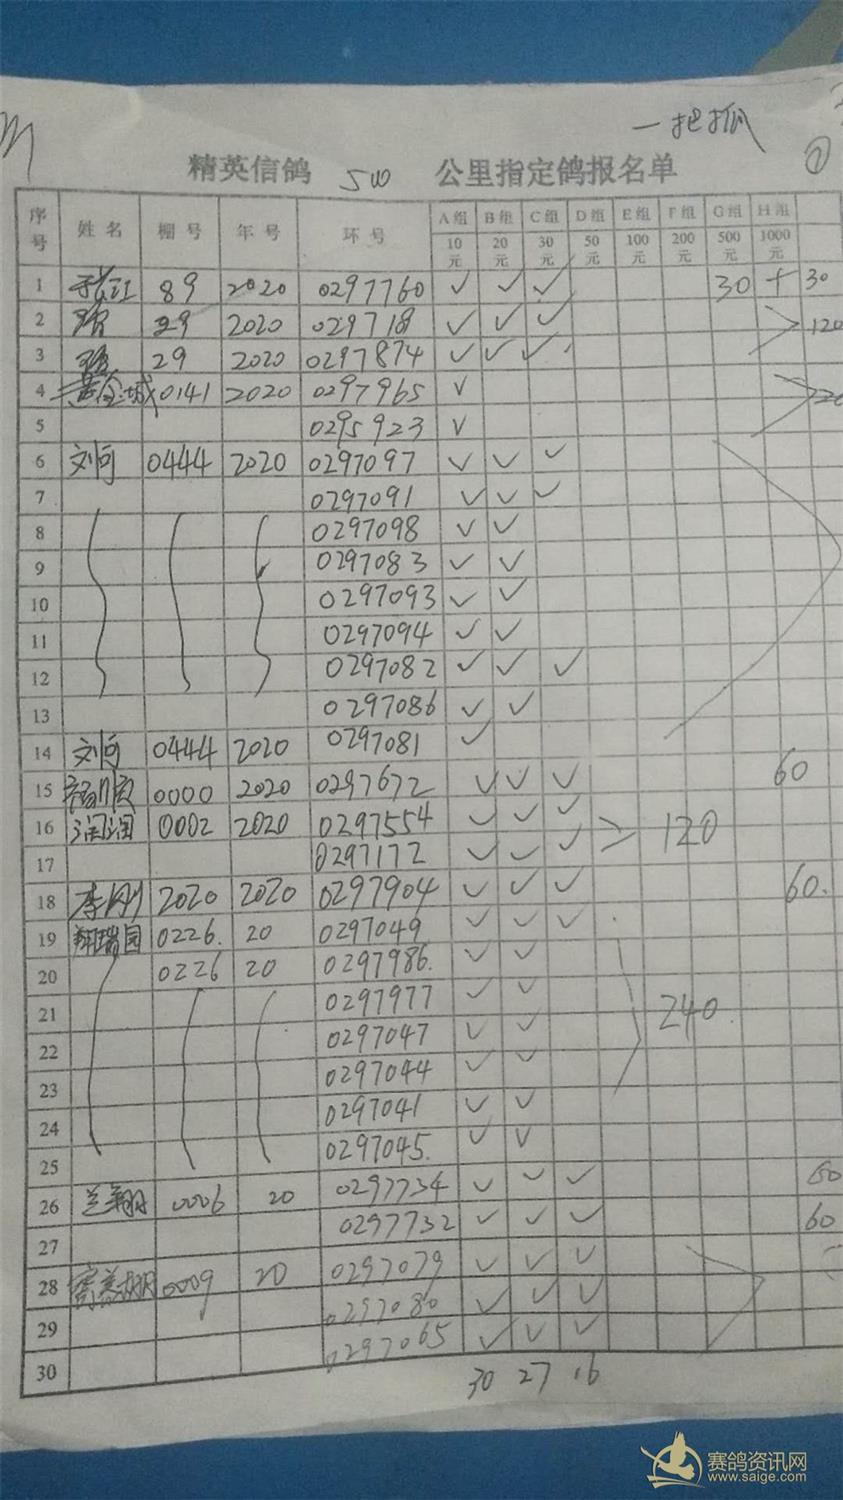 一把抓
①
精英信鸽 500 公里指定鸽报名单
序号 姓名 棚号 年号 环号 A组 B组 C组 D组 E组 F组 G组 H组
10元 20元 30元 50元 100元 200元 500元 1000元
1 89 2020 0297760 ✓ ✓ ✓ 30 + 30
2 29 2020 029718 ✓ ✓ ✓
120
3 29 2020 0297874 ✓ ✓ ✓
4 0141 2020 0297965 ✓
20
5 0295923 ✓
6 刘向 0444 2020 0297097 ✓ ✓ ✓
7 0297091 ✓ ✓ ✓
8 0297098 ✓ ✓
9 0297083 ✓ ✓
10 0297093 ✓ ✓
11 0297094 ✓ ✓
12 0297082 ✓ ✓ ✓
13 0297086 ✓ ✓
14 刘向 0444 2020 0297081 ✓
15 0000 2020 0297672 ✓ ✓ ✓ 60
16 0002 2020 0297554 ✓ ✓ ✓ 120
17 0297172 ✓ ✓ ✓
18 李刚 2020 2020 0297904 ✓ ✓ ✓ 60.
19 翔瑞园 0226. 20 0297049 ✓ ✓ ✓
20 0226 20 0297986. ✓ ✓
21 0297977 ✓ ✓
240.
22 0297047 ✓ ✓
23 0297044 ✓ ✓
24 0297041 ✓ ✓
25 0297045. ✓ ✓
26 兰翔 0006 20 0297734 ✓ ✓ ✓ 60
27 0297732 ✓ ✓ ✓ 60
28 0009 20 0297079 ✓ ✓ ✓
29 0297080 ✓ ✓ ✓
30 0297065 ✓ ✓ ✓
30 27 16
赛鸽资讯网
www.saige.com